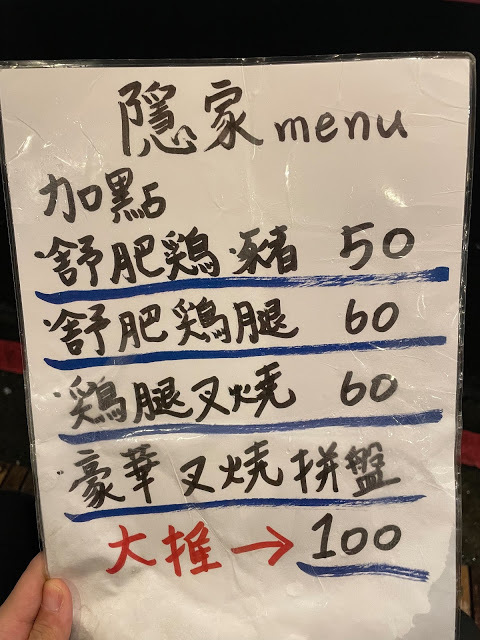 隱家menu
加點
舒肥鷄豬 50
舒肥鷄腿 60
鷄腿叉燒 60
豪華叉燒拼盤
大推→100